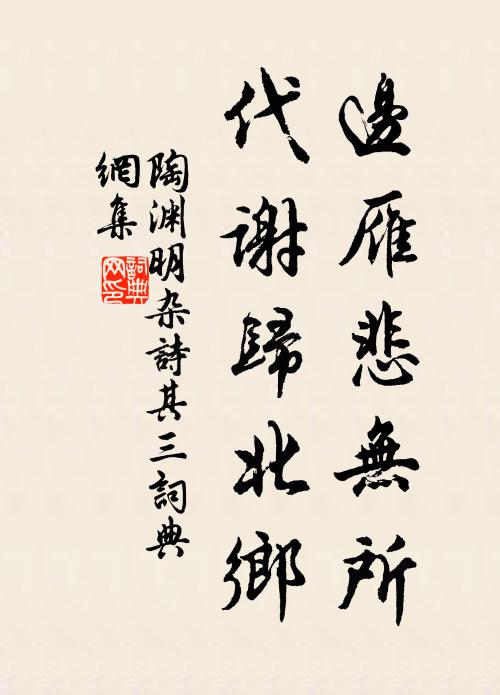 邊雁悲無所
代謝歸北鄉
陶渊明杂詩其三詞典
網集
詞典
网印